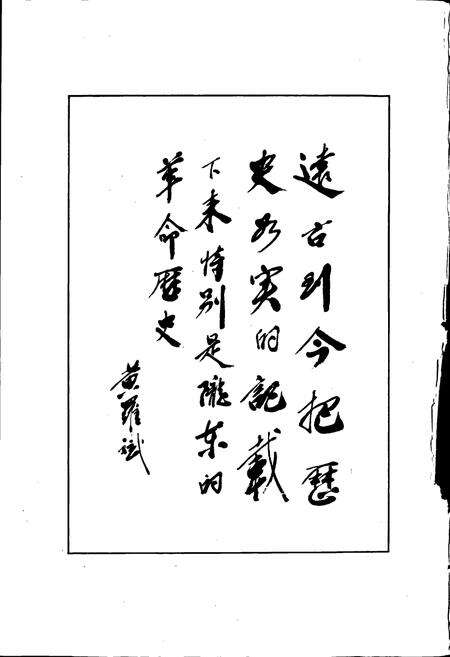 遠古到今把歷
史如实的記載
下来特别是隴东的
革命歷史
黄羅斌